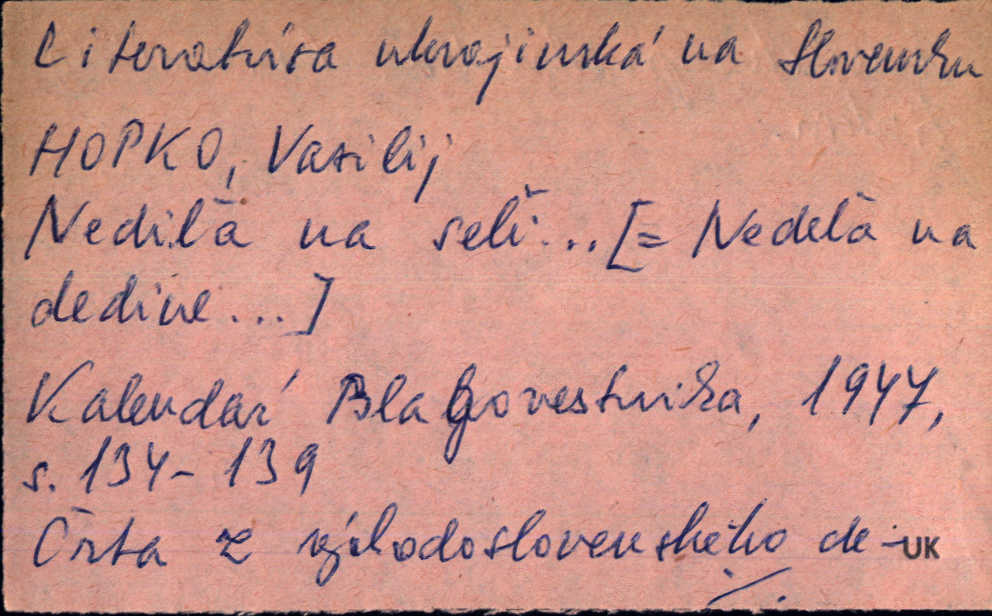 Literatúra ukrajinská na Slovensku
HOPKO, Vasilij
Nedilä na selě... [= Nedelä na
dedine...]
Kalendař Blagovestnika, 1947,
s. 134-139
Črta z východoslovenského de-
UK